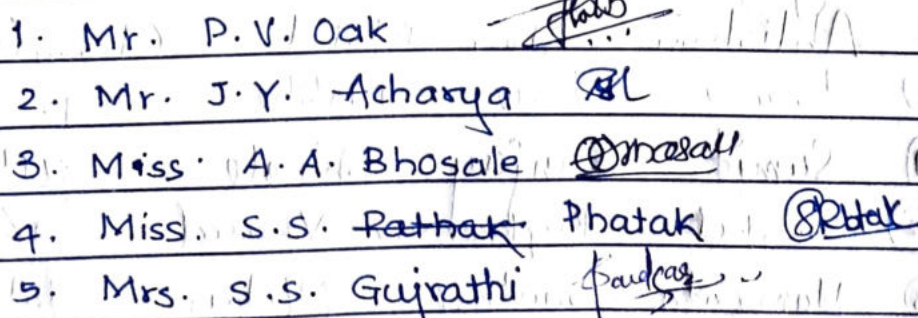 1. Mr. P.V. Oak
2. Mr. J.Y. Acharya
3. Miss. A.A. Bhosale
4. Miss. S.S. Pathak Phatak
5. Mrs. S.S. Gujrathi